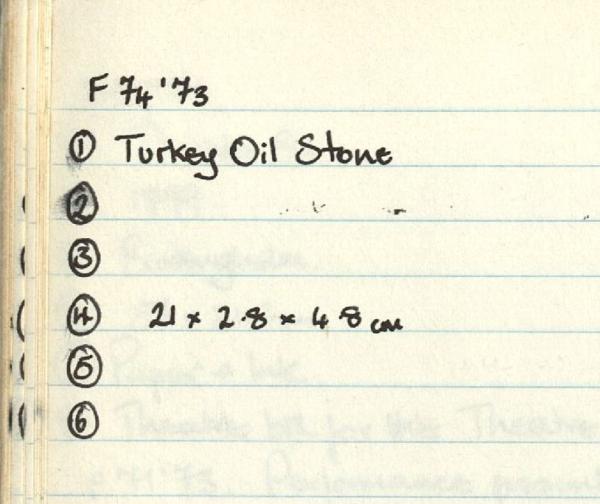 F 74'73
① Turkey Oil Stone
②
③
④ 21 x 2.8 x 4.8 cm
⑤
⑥